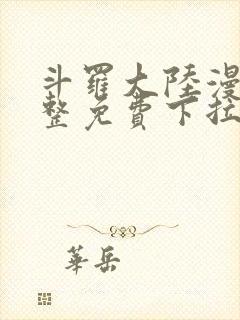 斗羅大陸漫
整免費下拉
華岳